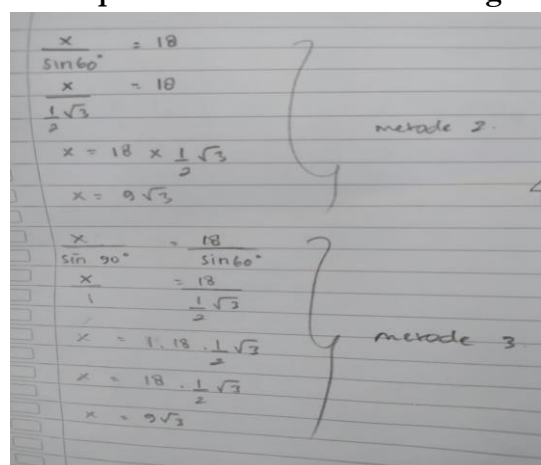 x/sin 60° = 18
x/(1/2 √3) = 18
x = 18 × 1/2 √3
x = 9√3
metode 2.
x/sin 90° = 18/sin 60°
x/1 = 18/(1/2 √3)
x = 1. 18 . 1/2 √3
x = 18 . 1/2 √3
x = 9√3
metode 3